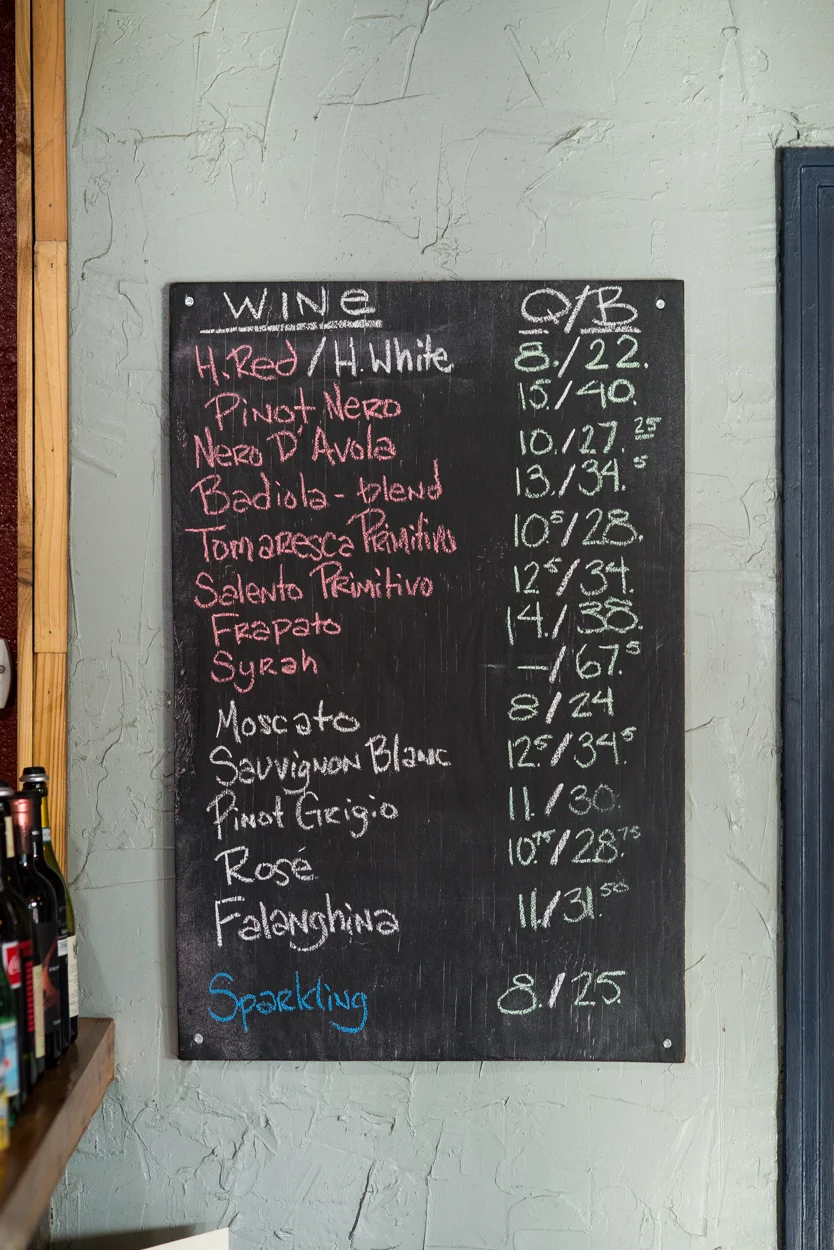 WINE Q/B
H.Red / H.White 8./22.
Pinot Nero 15/40.
Nero D'Avola 10./27.25
Badiola-blend 13./34.5
Tomaresca Primitivo 10.5/28.
Salento Primitivo 12.5/34.
Frapato 14./38.
Syrah —/67.5
Moscato 8/24
Sauvignon Blanc 12.5/34.5
Pinot Grigio 11./30.
Rosé 10.75/28.75
Falanghina 11/31.50
Sparkling 8./25.